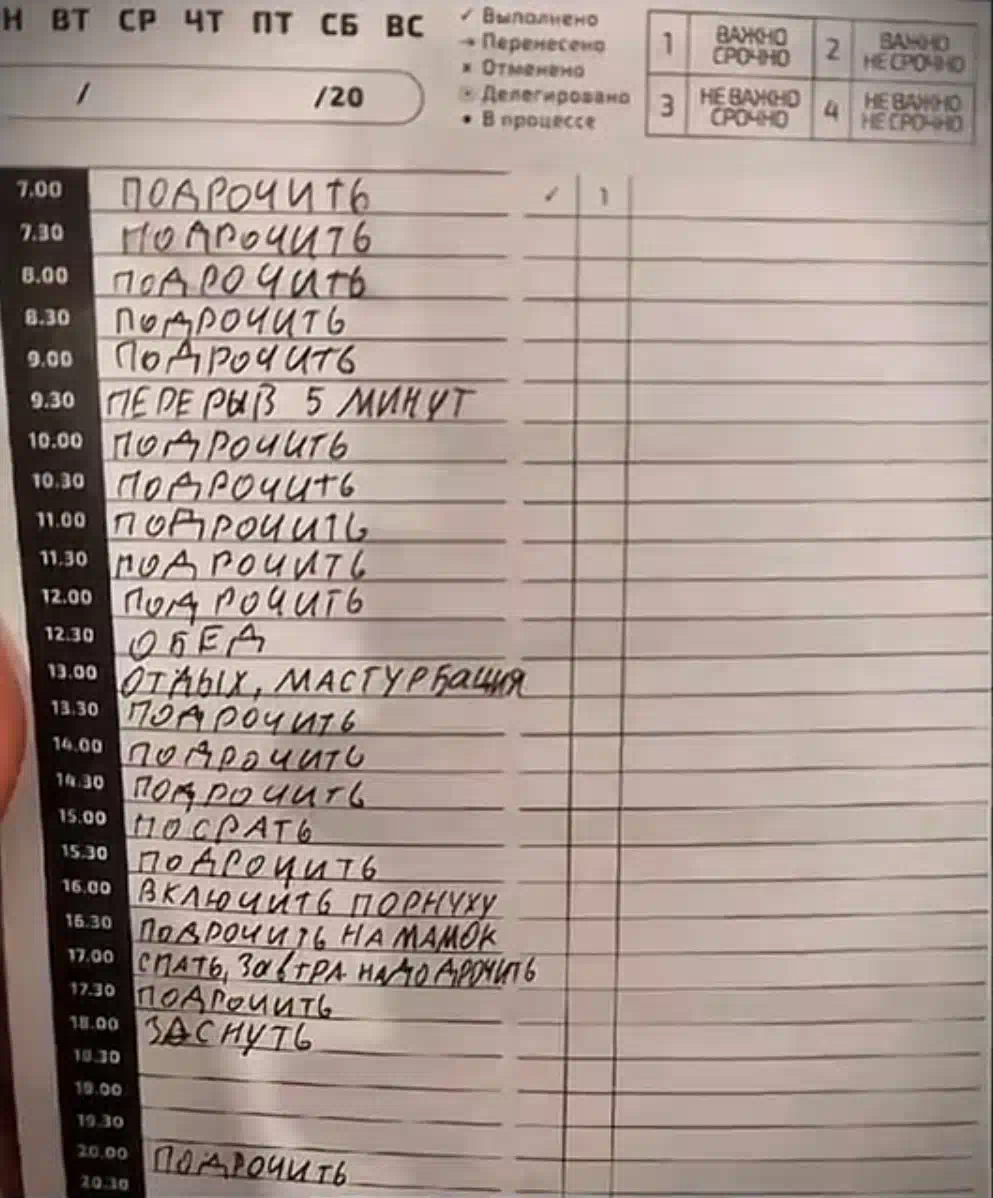 Н ВТ СР ЧТ ПТ СБ ВС
/ /20
✓ Выполнено
→ Перенесено
× Отменено
Делегировано
• В процессе
1 ВАЖНО СРОЧНО 2 ВАЖНО НЕ СРОЧНО
3 НЕ ВАЖНО СРОЧНО 4 НЕ ВАЖНО НЕ СРОЧНО
7.00 ПОДРОЧИТЬ ✓ 1
7.30 ПОДРОЧИТЬ
8.00 ПОДРОЧИТЬ
8.30 ПОДРОЧИТЬ
9.00 ПОДРОЧИТЬ
9.30 ПЕРЕРЫВ 5 МИНУТ
10.00 ПОДРОЧИТЬ
10.30 ПОДРОЧИТЬ
11.00 ПОДРОЧИТЬ
11.30 ПОДРОЧИТЬ
12.00 ПОДРОЧИТЬ
12.30 ОБЕД
13.00 ОТДЫХ, МАСТУРБАЦИЯ
13.30 ПОДРОЧИТЬ
14.00 ПОДРОЧИТЬ
14.30 ПОДРОЧИТЬ
15.00 ПОСРАТЬ
15.30 ПОДРОЧИТЬ
16.00 ВКЛЮЧИТЬ ПОРНУХУ
16.30 ПОДРОЧИТЬ НА МАМОК
17.00 СПАТЬ, ЗАВТРА НАДО ДРОЧИТЬ
17.30 ПОДРОЧИТЬ
18.00 ЗАСНУТЬ
18.30
19.00
19.30
20.00 ПОДРОЧИТЬ
20.30